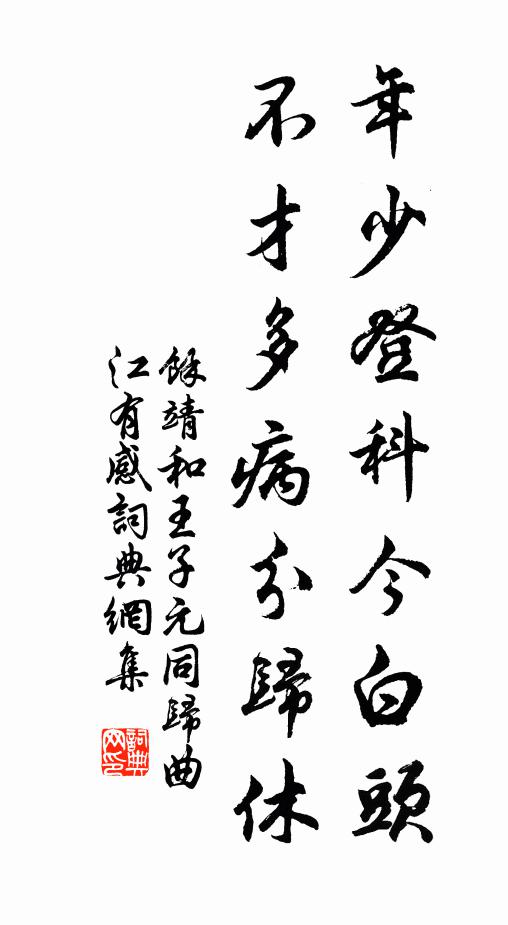 年少登科今白頭
不才多病分歸休
餘靖和王子元同歸曲
江有感詞典網集
詞典
网印